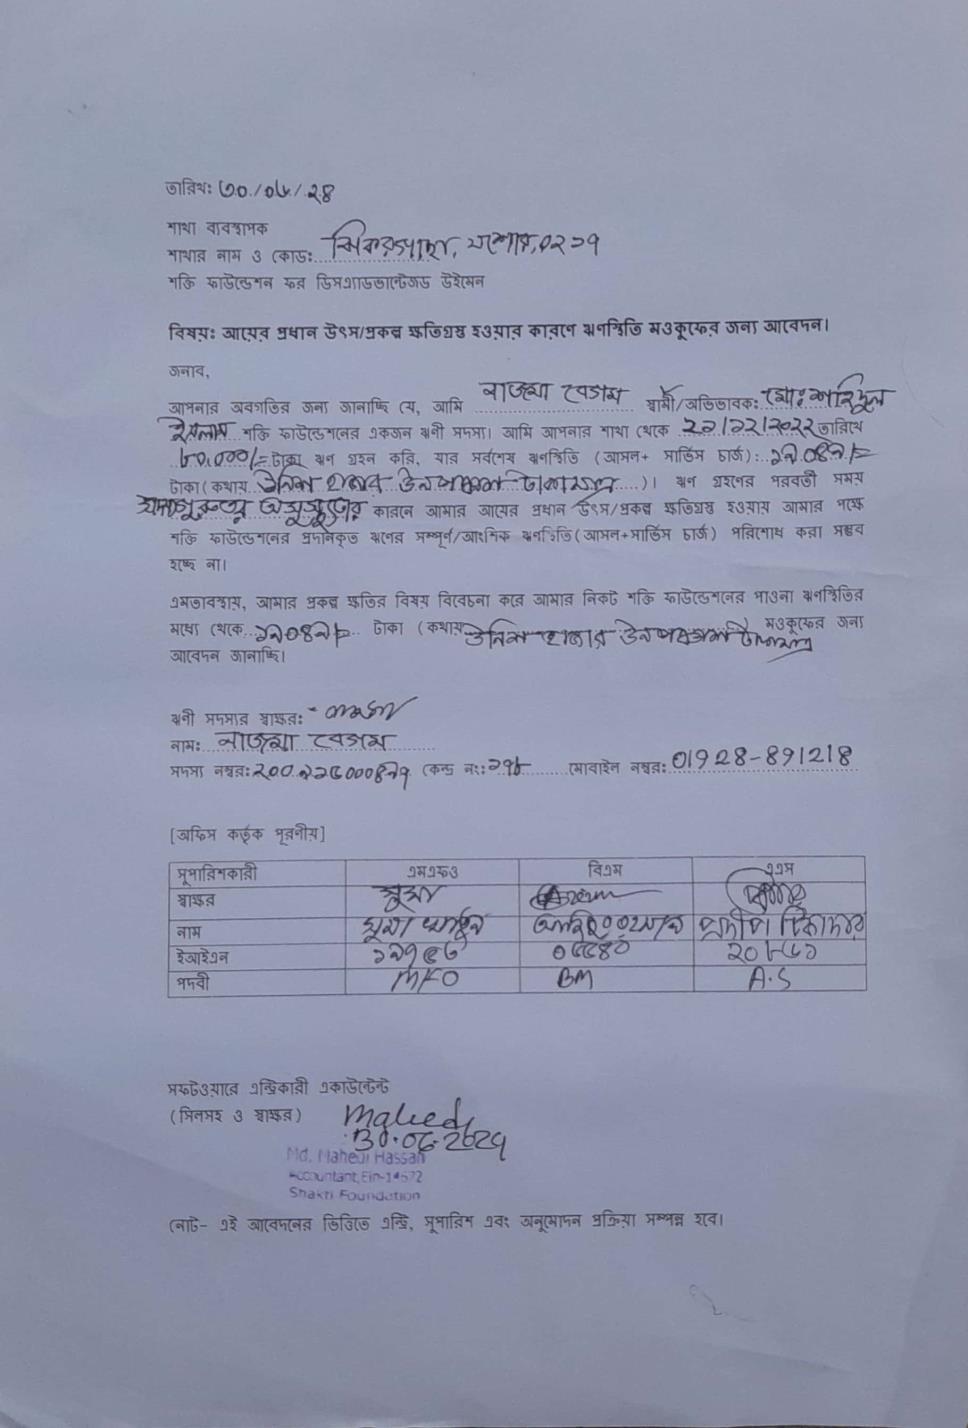 তারিখঃ ৩০/০৬/২৪
শাখা ব্যবস্থাপক
শাখার নাম ও কোডঃ ঝিকরগাছা, যশোর, ০২১৭
শক্তি ফাউন্ডেশন ফর ডিসএ্যাডভান্টেজড উইমেন
বিষয়ঃ আয়ের প্রধান উৎস/প্রকল্প ক্ষতিগ্রস্ত হওয়ার কারণে ঋণস্থিতি মওকুফের জন্য আবেদন।
জনাব,
আপনার অবগতির জন্য জানাচ্ছি যে, আমি নাজমা বেগম স্বামী/অভিভাবকঃ মোঃ শহিদুল
ইসলাম শক্তি ফাউন্ডেশনের একজন ঋনী সদস্য। আমি আপনার শাখা থেকে ২১/১২/২০২২ তারিখে
৮০,০০০/= টাকা ঋণ গ্রহন করি, যার সর্বশেষ ঋণস্থিতি (আসল+ সার্ভিস চার্জ): ১৯০৪৯/=
টাকা (কথায় উনিশ হাজার উনপঞ্চাশ টাকামাত্র)। ঋণ গ্রহণের পরবর্তী সময়
অসুস্থতার কারনে আমার আয়ের প্রধান উৎস/প্রকল্প ক্ষতিগ্রস্ত হওয়ায় আমার পক্ষে
শক্তি ফাউন্ডেশনের প্রদানকৃত ঋণের সম্পূর্ণ/আংশিক ঋণস্থিতি (আসল+সার্ভিস চার্জ) পরিশোধ করা সম্ভব
হচ্ছে না।
এমতাবস্থায়, আমার প্রকল্প ক্ষতির বিষয় বিবেচনা করে আমার নিকট শক্তি ফাউন্ডেশনের পাওনা ঋণস্থিতির
মধ্যে থেকে ১৯০৪৯/= টাকা (কথায় উনিশ হাজার উনপঞ্চাশ টাকামাত্র মওকুফের জন্য
আবেদন জানাচ্ছি।
ঋনী সদস্যর স্বাক্ষরঃ নাজমা
নামঃ নাজমা বেগম
সদস্য নম্বরঃ কেন্দ্র নং: ১৭৮ মোবাইল নম্বরঃ 01928-891218
[অফিস কর্তৃক পূরনীয়]
সুপারিশকারী এমএফও বিএম এএস
স্বাক্ষর
নাম প্রদীপ টিকাদার
ইআইএন ২০৮৬১
পদবী MFO BM A.S
সফটওয়ারে এন্ট্রিকারী একাউন্টেন্ট
(সিলসহ ও স্বাক্ষর) Mahedi
30.06.2024
Md. Mahedi Hassan
Accountant, Ein-14672
Shakti Foundation
নোট- এই আবেদনের ভিত্তিতে এন্ট্রি, সুপারিশ এবং অনুমোদন প্রক্রিয়া সম্পন্ন হবে।